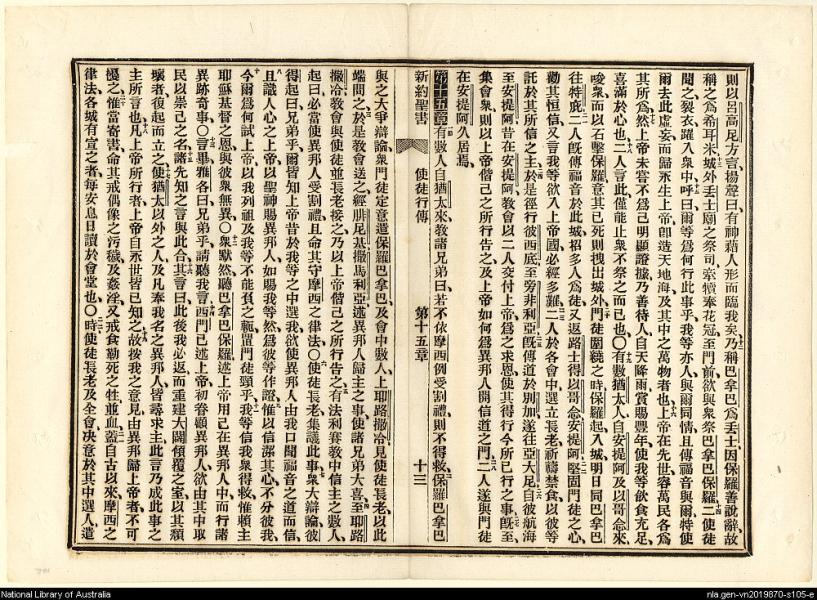 則以呂高尼方言揚聲曰有神藉人形而臨我矣乃稱巴拿巴爲丟士因保羅善說辭故
稱之爲希耳米城外丟士廟之祭司牽犢奉花冠至門前欲與衆祭巴拿巴保羅二使徒
聞之裂衣躍入衆中呼曰爾等爲何行此事乎我等亦人與爾同情且傳福音與爾特使
爾去此虛妄而歸永生上帝卽造天地海及其中之萬物者也上帝在先世容萬民各爲
其所爲然上帝未嘗不爲己明顯證據乃善待人自天降雨賞賜豐年使我等飲食充足
喜滿於心也二人言此僅能止衆不祭之而已也○有數猶太人自安提阿及以哥念來
唆衆而以石擊保羅意其已死則拽出城外門徒圍繞之時保羅起入城明日同巴拿巴
往特庇二人旣傳福音於此城招多人爲徒又返路士得以哥念安提阿堅固門徒之心
勸其恒信又言我等欲入上帝國必經多難二人於各會中選立長老祈禱禁食以彼等
託於其所信之主於是徑行彼西底至旁非利亞旣傳道於別加遂往亞大尼自彼航海
至安提阿昔在安提阿教會以二人交付上帝爲之求恩使其得行今所已行之事旣至
集會衆則以上帝偕己之所行告之及上帝如何爲異邦人開信道之門二人遂與門徒
在安提阿久居焉
第十五章有數人自猶太來教諸兄弟曰若不依摩西例受割禮則不得救保羅巴拿巴
新約聖書 使徒行傳 第十五章 十三
與之大爭辯論衆門徒定意遣保羅巴拿巴及會中數人上耶路撒冷見使徒長老以此
端問之於是教會送之經腓尼基撒馬利亞述異邦人歸主之事使諸兄弟大喜至耶路
撒冷教會與使徒並長老接之乃以上帝偕己之所行告之有法利賽教中信主之數人
起曰必當使異邦人受割禮且命其守摩西之律法○使徒長老集議此事衆大辯論彼
得起曰兄弟乎爾皆知上帝昔於我等之中選我欲使異邦人由我口聞福音之道而信
且識人心之上帝以聖神賜異邦人如賜我等然爲彼等作證惟以信潔其心不分彼我
今爾爲何試上帝以我列祖及我等不能負之軛置門徒頸乎我等信我衆得救惟賴主
耶穌基督之恩與彼衆無異○衆默然聽巴拿巴保羅述上帝用己在異邦人中而行諸
異跡奇事○言畢雅各曰兄弟乎請聽我言西門已述上帝初眷顧異邦人欲由其中取
民以崇己之名諸先知之言與此合其言曰此後我必返而重建大闢傾覆之室以其頹
壞者復起而立之使猶太以外之人及凡奉我名之異邦人皆尋求主此言乃成此事之
主所言也凡上帝所行者上帝自永世皆已知之故按我之意見由異邦歸上帝者不可
擾之惟當寄書命其戒偶像之污穢及姦淫又戒食勒死之牲並血蓋自古以來摩西之
律法各城有宣之者每安息日讀於會堂也○時使徒長老及全會决意於其中選人遣
National Library of Australia
nla.gen-vn2019870-s105-e